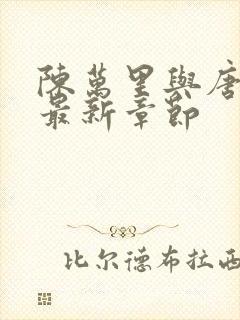 陳萬里與唐
最新章節
比尔德布拉西